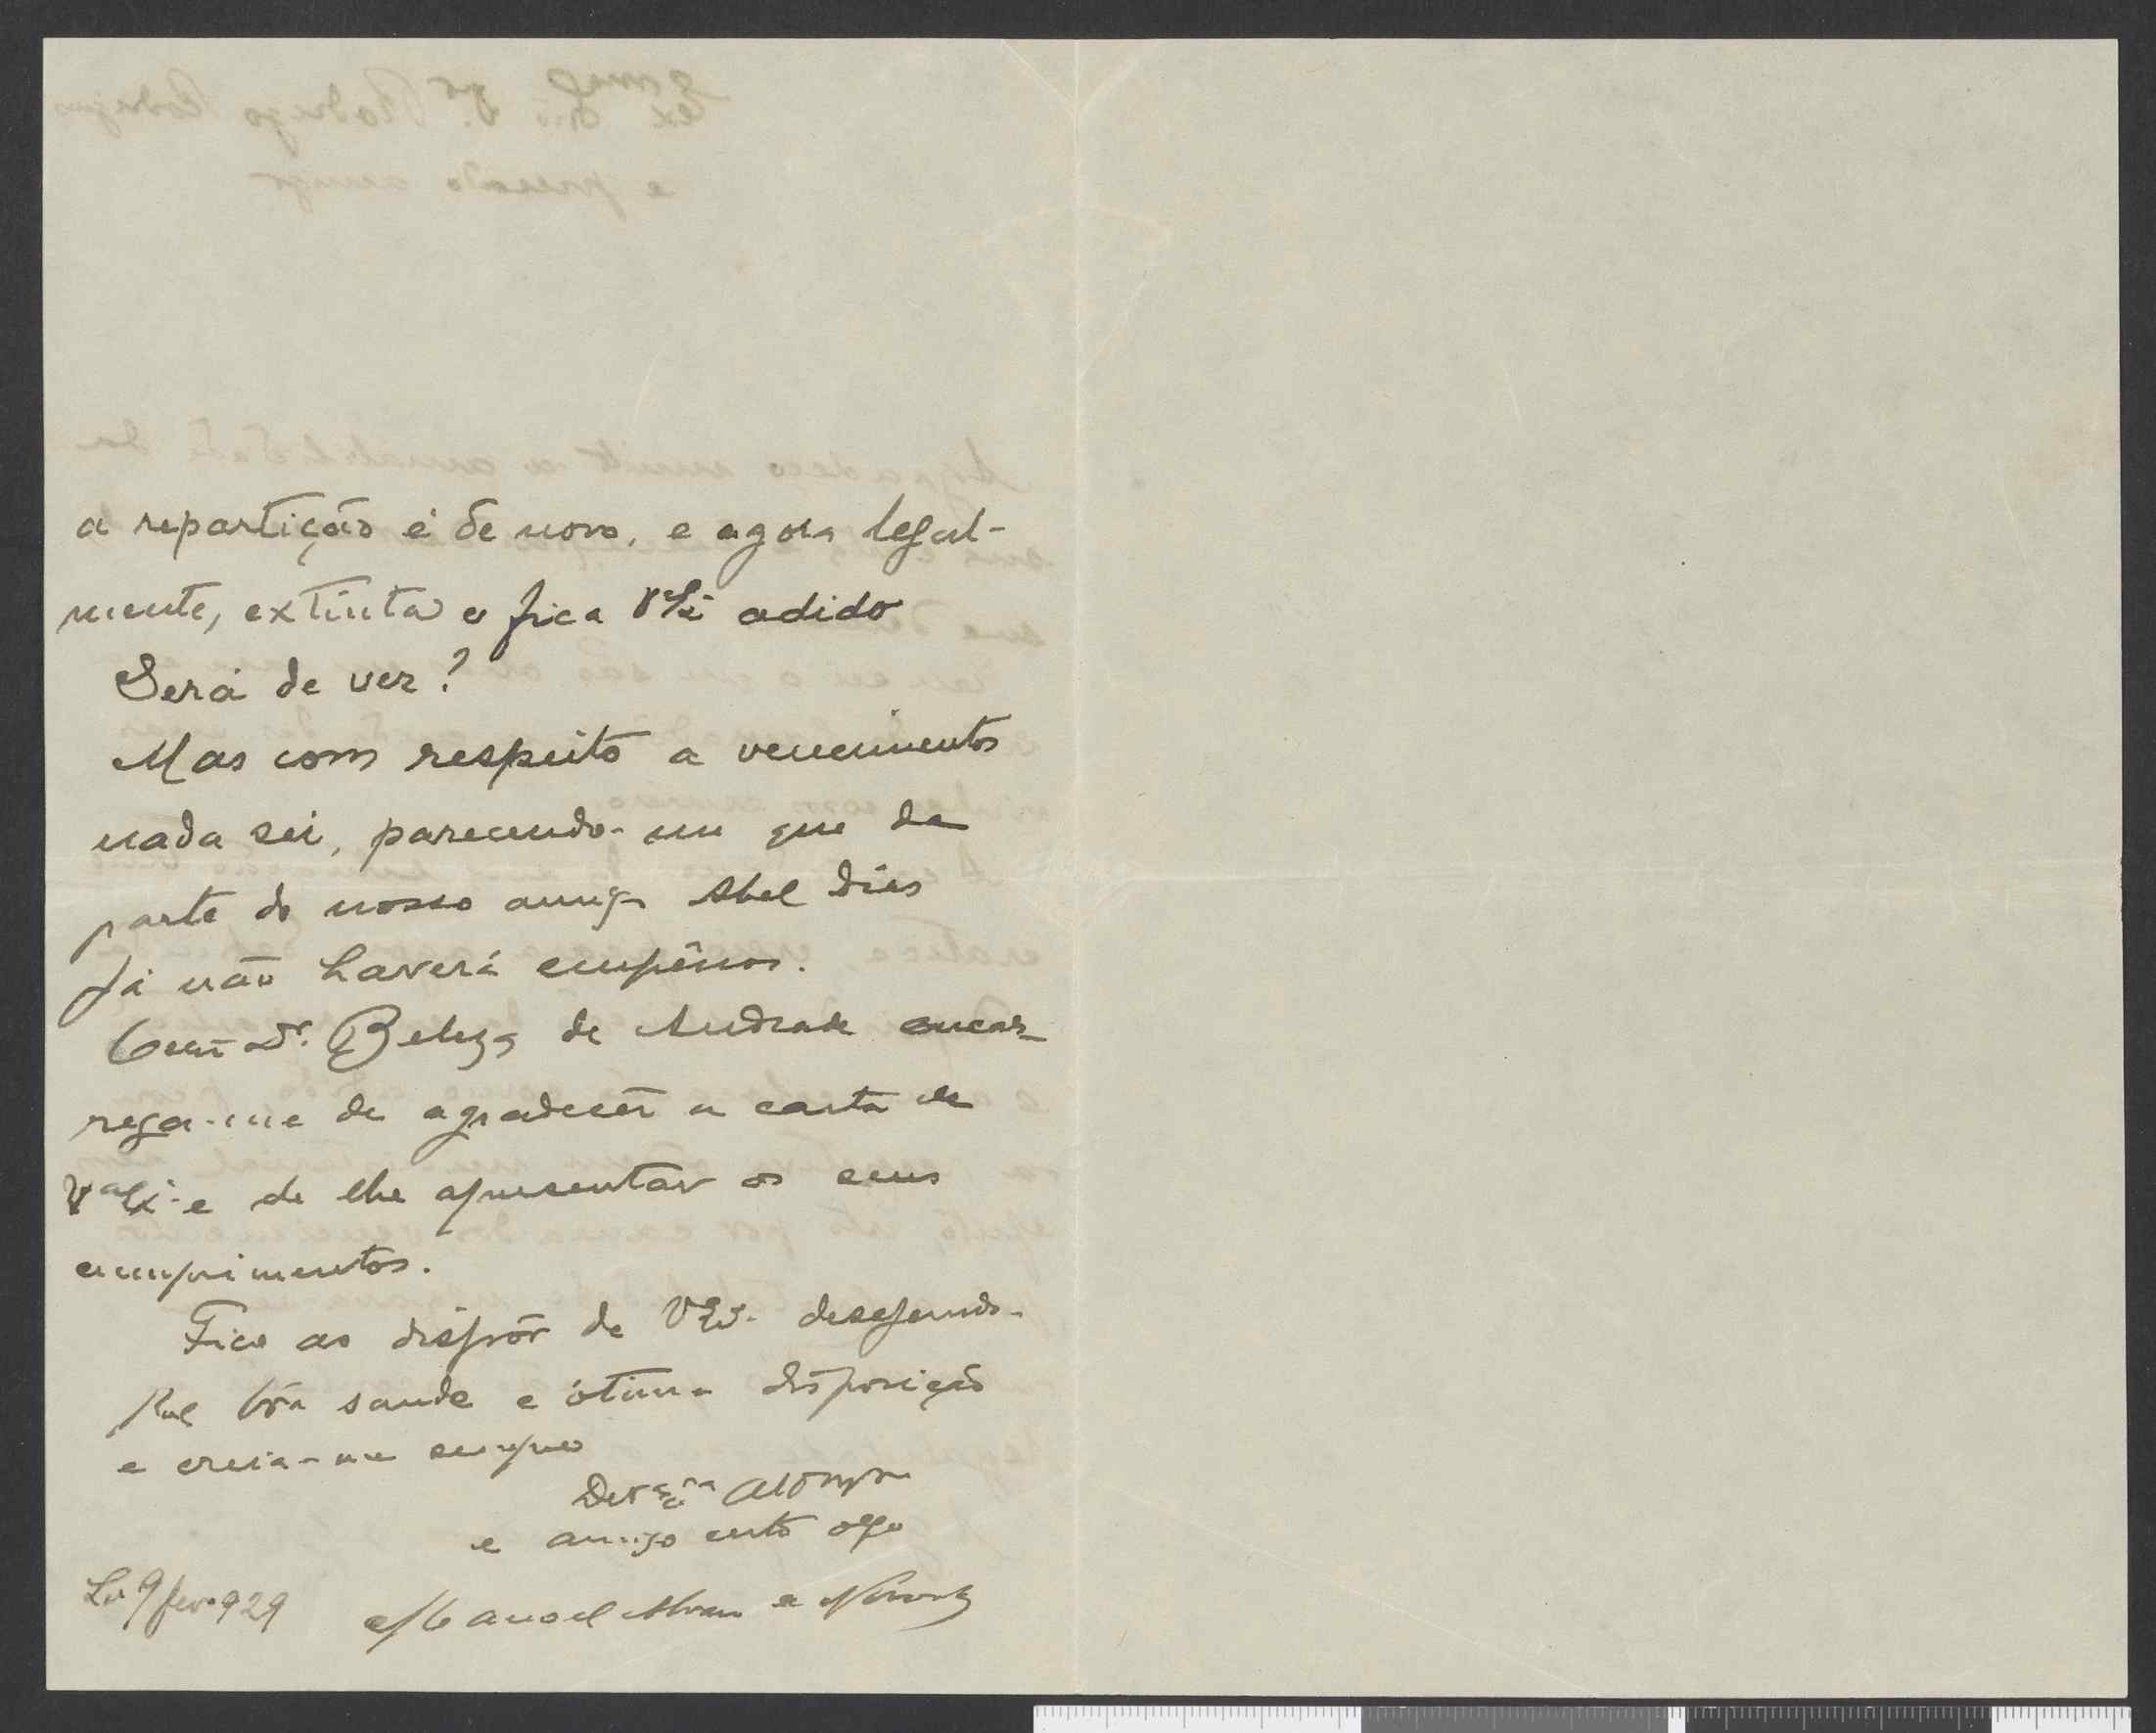 a repartição é de novo, e agora legal-
mente, extinta e fica V. Ex.ª adido
Será de ver?
Mas com respeito a vencimentos
nada sei, parecendo-me que da
parte do nosso amigo Abel Dias
já não haverá empênos.
O Dr. Beleza de Andrade encar-
rega-me de agradecer a carta de
V.ª Ex.ª e de lhe apresentar os seus
cumprimentos.
Fico ao dispôr de V. Ex.ª desejando-
lhe bôa saude e ótima disposição
e creia-me sempre
De V. Ex.ª
e amigo certo obgo
Lx 9 fevº 929 Manoel e